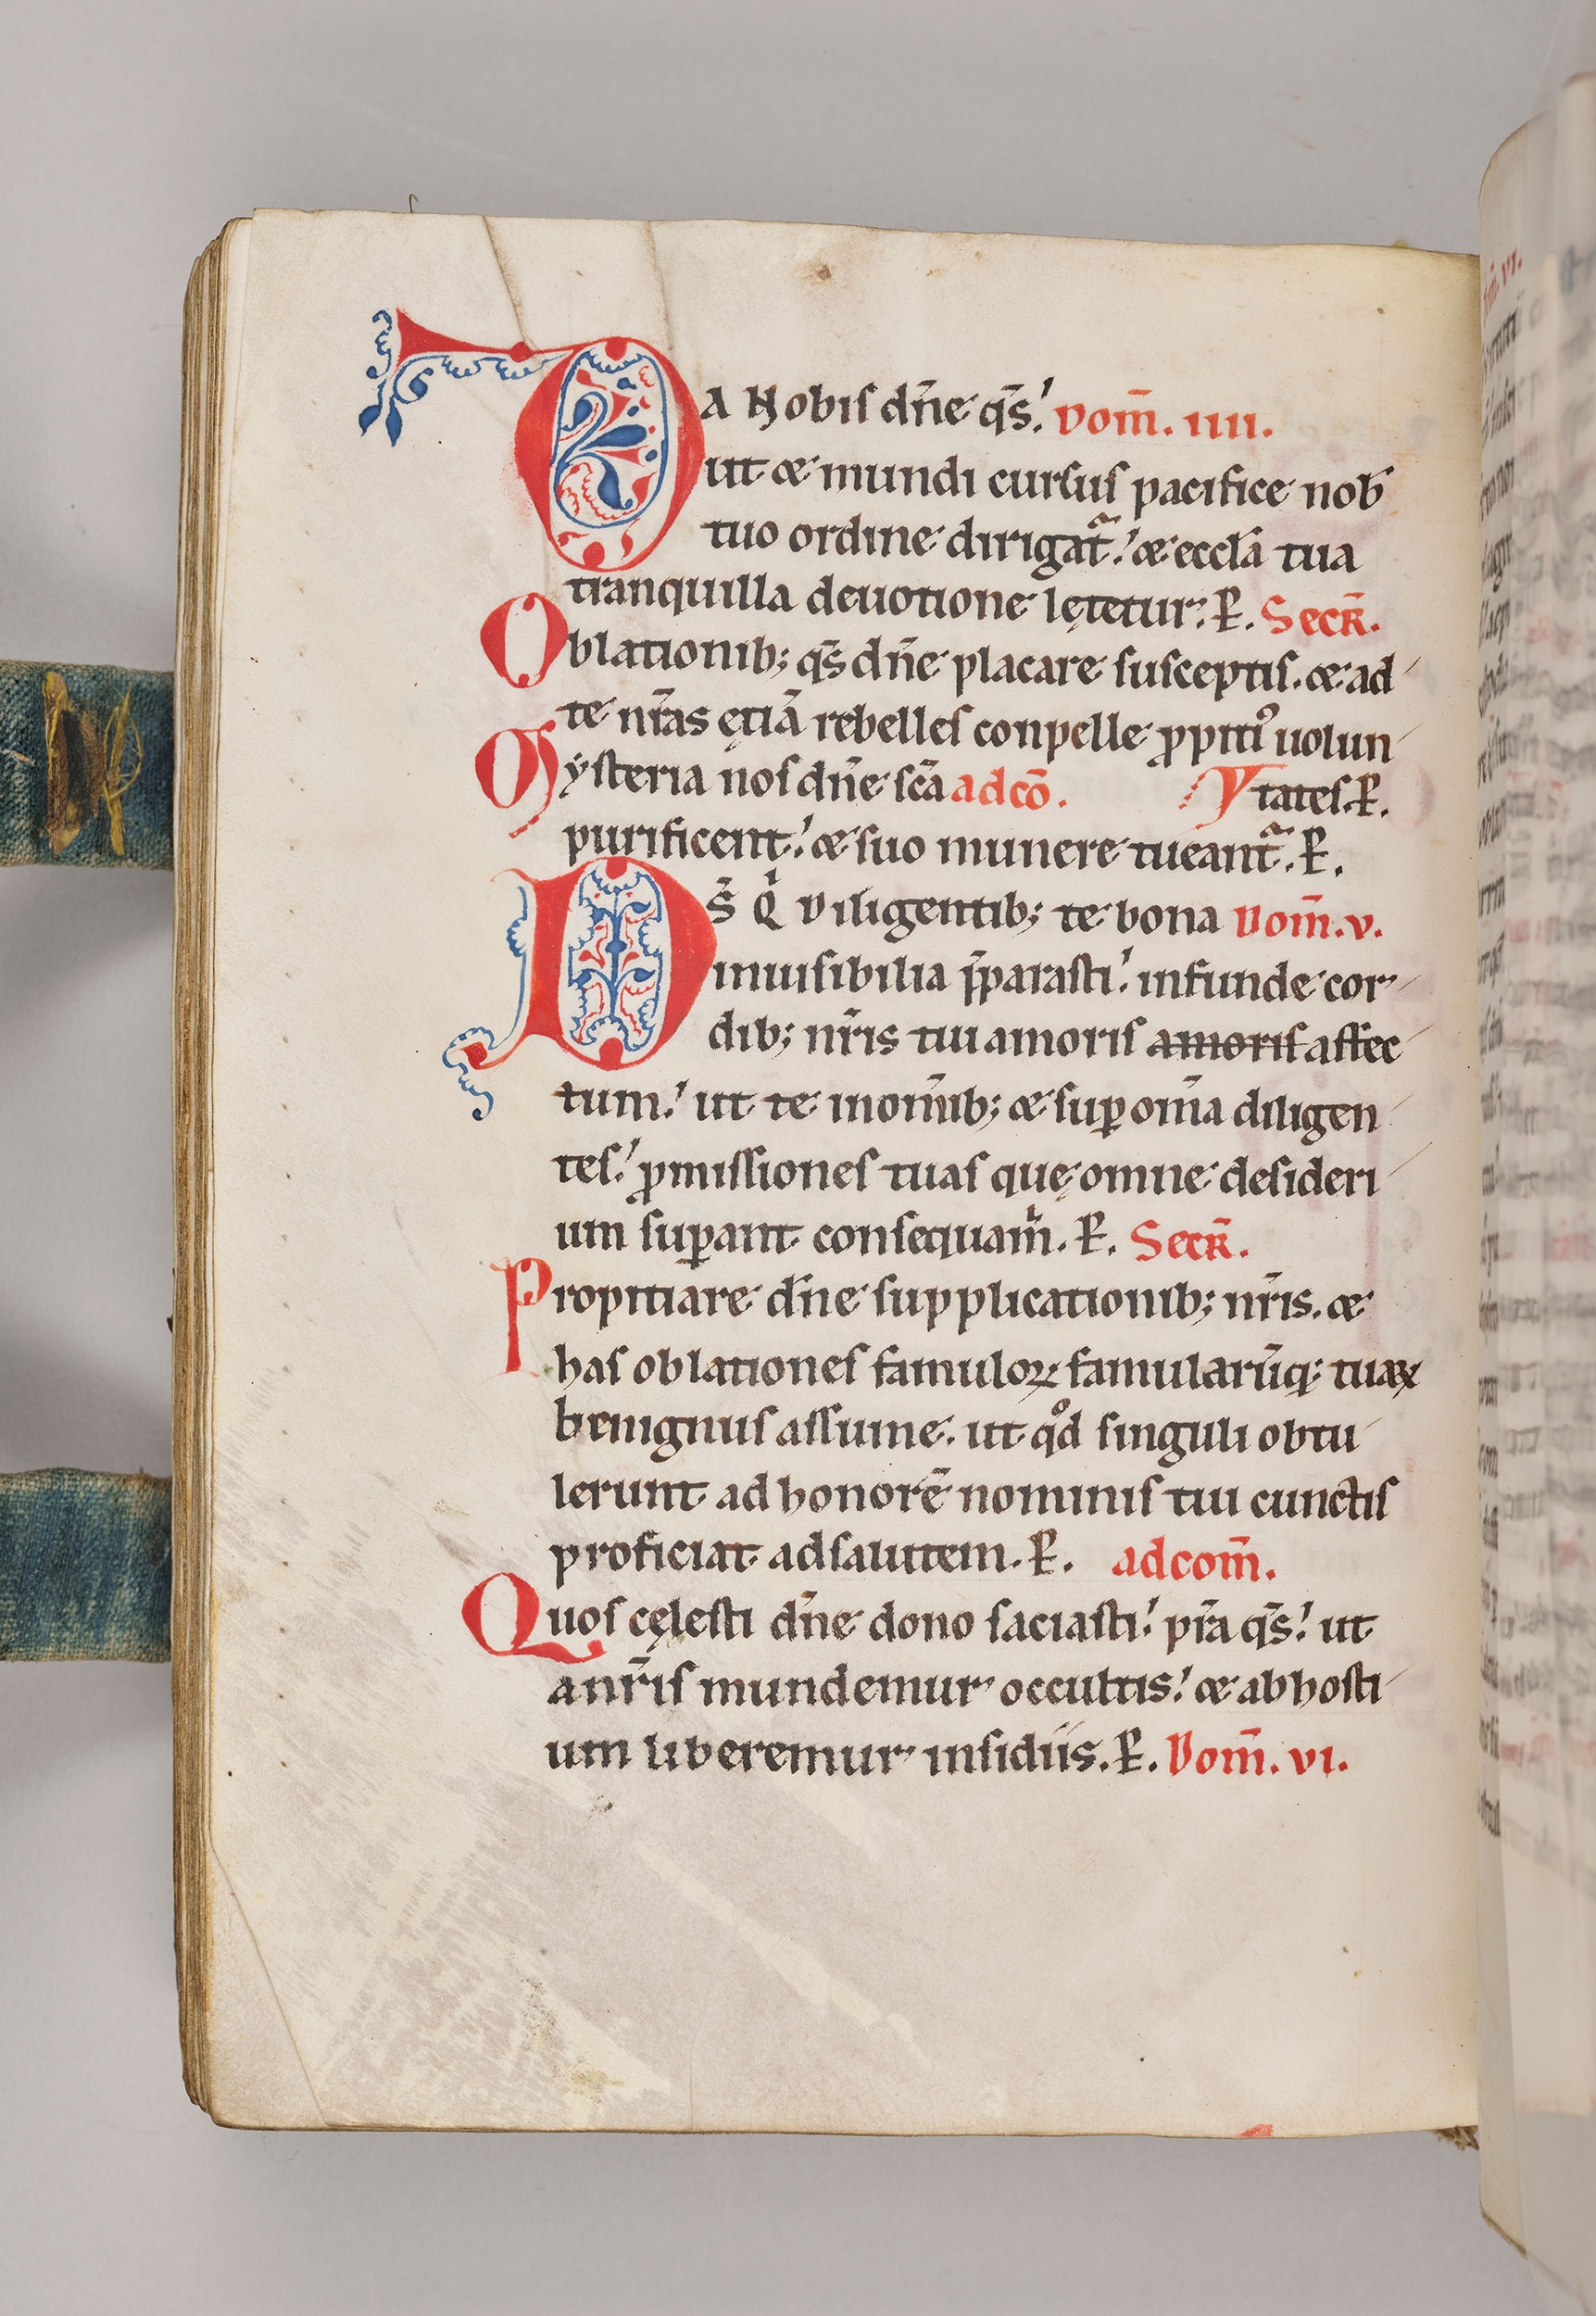 DA Nobis dn̄e q̄s! Dom̄. IIII.
ut & mundi cursus pacifice nob̄
tuo ordine dirigat᷑! & eccl̄a tua
tranquilla deuotione lętetur. P. Secr̄.
Oblationib; q̄s dn̄e placare susceptis. & ad
te nr̄as ętiā rebelles conpelle ꝓpitiꝰ uolun
Mysteria nos dn̄e sc̄a ad cō. tates. P.
purificent! & suo munere tueant᷑. P.
DS̄ Qͥ Diligentib; te bona Dom̄. v.
inuisibilia p̄parasti! infunde cor
dib; nr̄is tui amoris amoris affec
tum! ut te in om̄ib; & suꝑ om̄ia diligen
tes! ꝓmissiones tuas quę omne desideri
um suꝑant consequam̄. P. Secr̄.
Propitiare dn̄e supplicationib; nr̄is. &
has oblationes famuloꝝ famularūq; tuaꝝ
benignus assume. ut qͦd singuli obtu
lerunt ad honorē nominis tui cunctis
proficiat ad salutem. P. ad com̄.
Quos cęlesti dn̄e dono saciasti! pr̄a q̄s! ut
a nr̄is mundemur occultis! & ab hosti
um liberemur insidiis. P. Dom̄. vi.